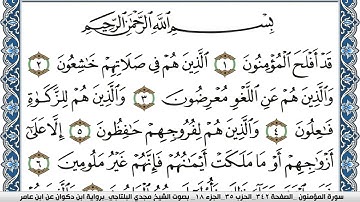 بِسْمِ اللَّهِ الرَّحْمَٰنِ الرَّحِيمِ
قَدْ أَفْلَحَ الْمُؤْمِنُونَ ١ الَّذِينَ هُمْ فِي صَلَاتِهِمْ خَاشِعُونَ ٢
وَالَّذِينَ هُمْ عَنِ اللَّغْوِ مُعْرِضُونَ ٣ وَالَّذِينَ هُمْ لِلزَّكَوٰةِ
فَاعِلُونَ ٤ وَالَّذِينَ هُمْ لِفُرُوجِهِمْ حَافِظُونَ ٥ إِلَّا عَلَىٰ
أَزْوَاجِهِمْ أَوْ مَا مَلَكَتْ أَيْمَانُهُمْ فَإِنَّهُمْ غَيْرُ مَلُومِينَ ٦
سورة المؤمنون _ الصفحة ٣٤٢ _ الحزب ٣٥ _ الجزء ١٨ _ بصوت الشيخ مجدي البلتاجي _ برواية ابن ذكوان عن ابن عامر